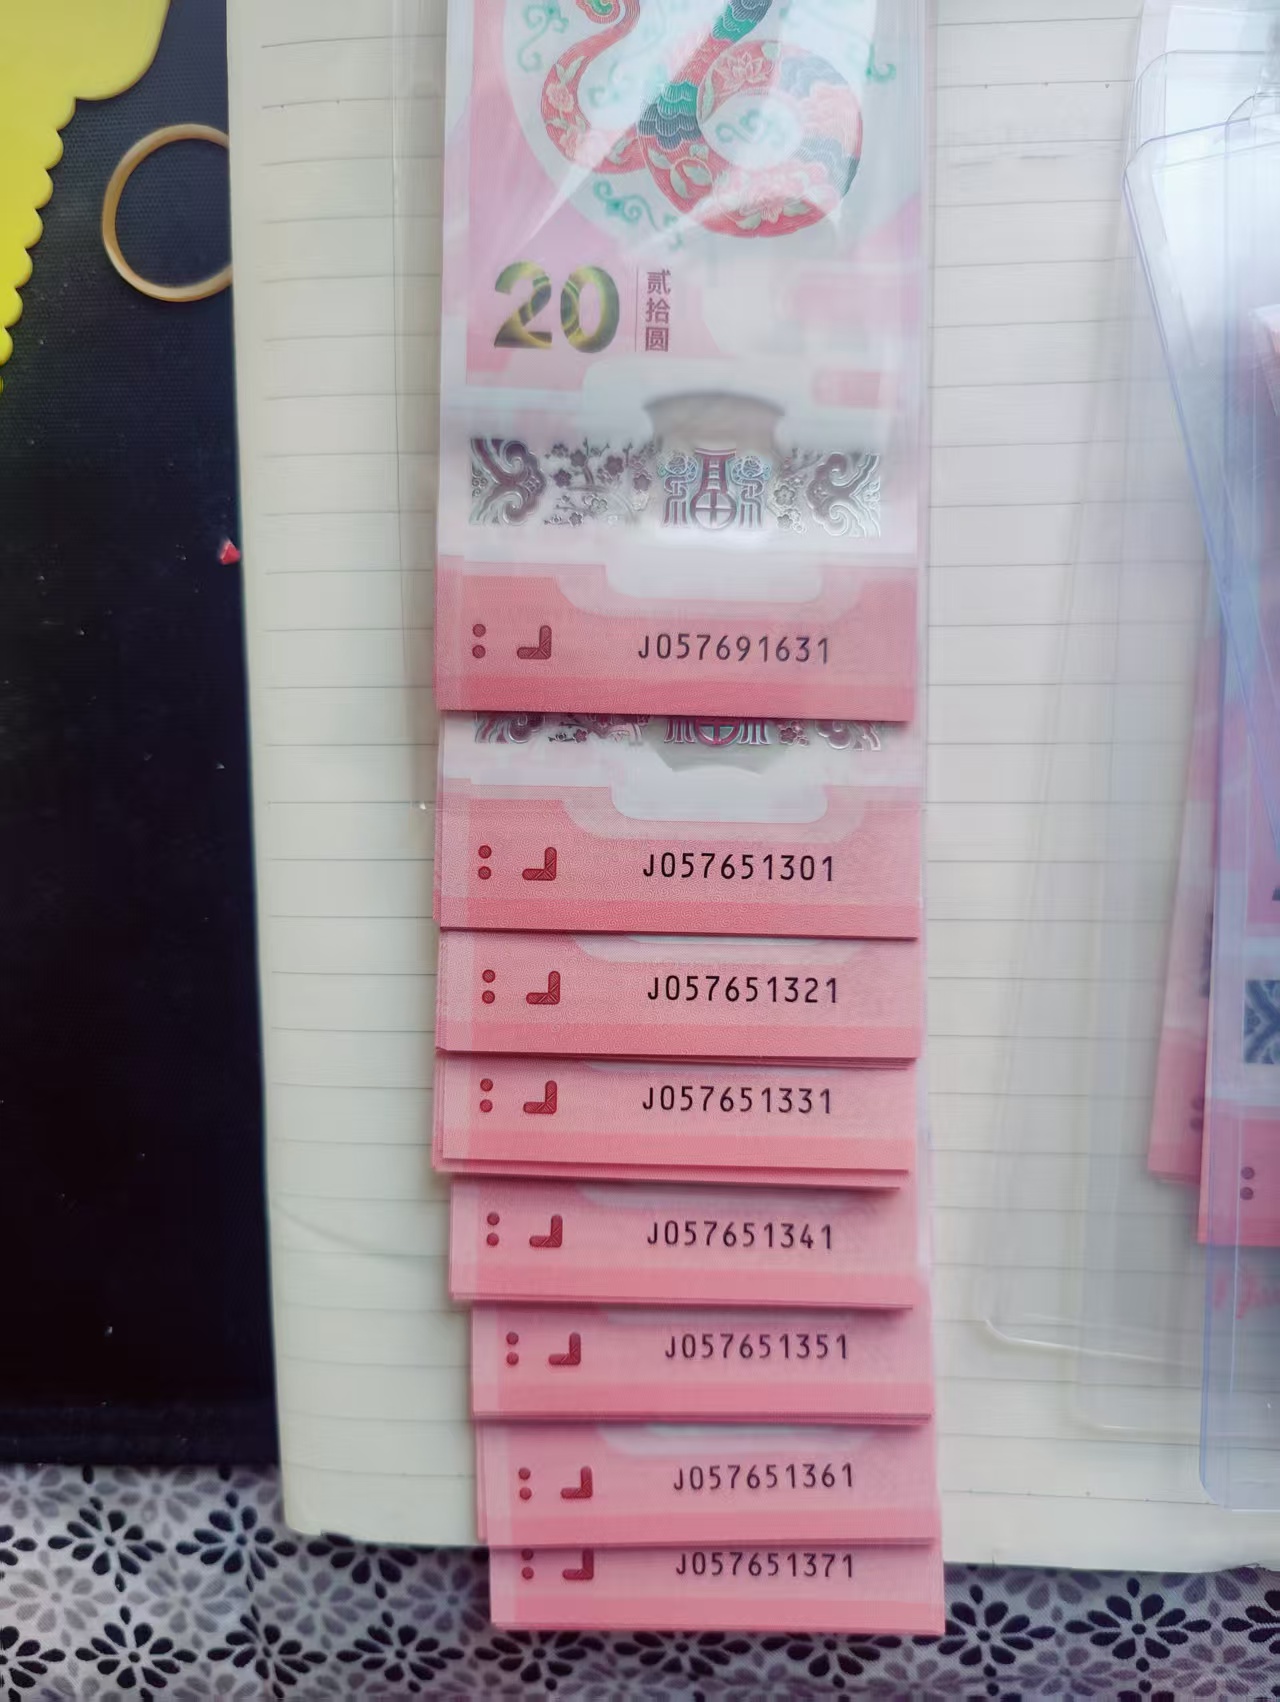 20
贰拾圆
J057691631
J057651301
J057651321
J057651331
J057651341
J057651351
J057651361
J057651371